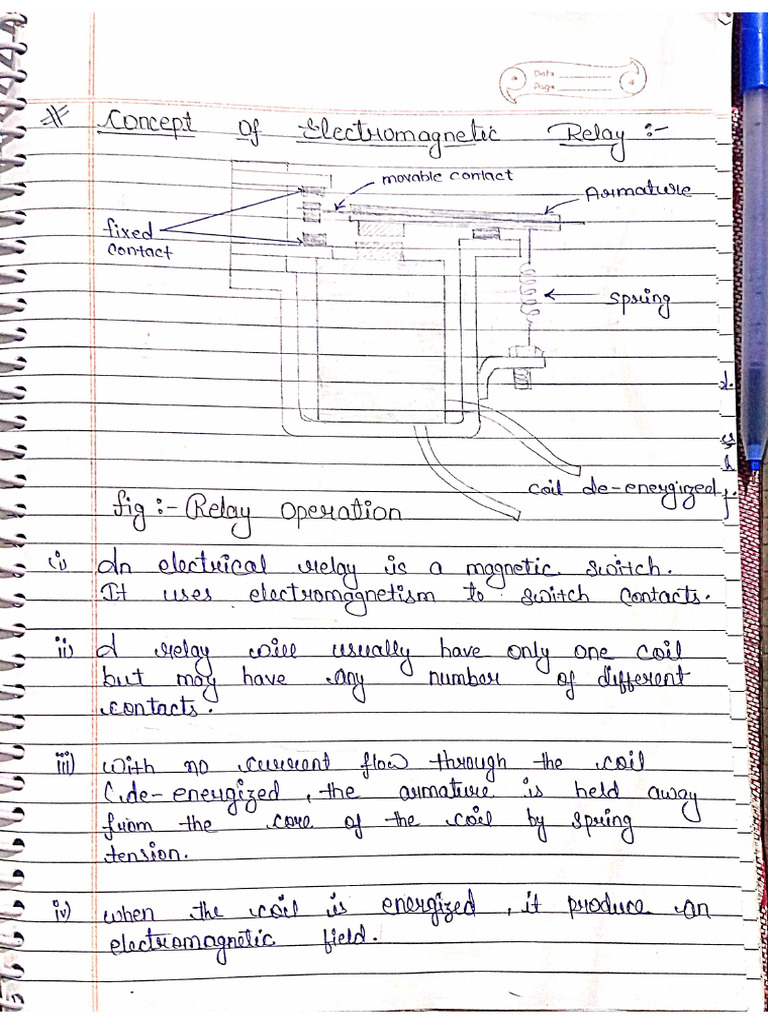 Date
Page
# Concept of Electromagnetic Relay :-
movable contact
Armature
fixed
contact
spring
coil de-energized
fig :- Relay operation
i) An electrical relay is a magnetic switch.
It uses electromagnetism to switch contacts.
ii) A relay will usually have only one coil
but may have any number of different
contacts.
iii) with no current flow through the coil
(de-energized, the armature is held away
from the core of the coil by spring
tension.
iv) when the coil is energized, it produce an
electromagnetic field.